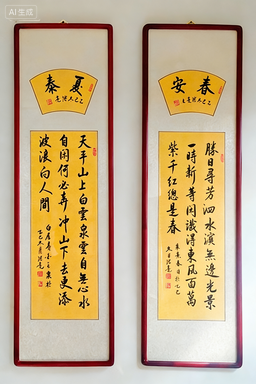 AI生成
春安
勝日尋芳泗水濱無邊光景
一時新等閒識得東風百萬
紫千紅總是春
夏泰
天平山上白雲泉雲自無心水
自閒何必奔冲山下去更添
波浪向人間